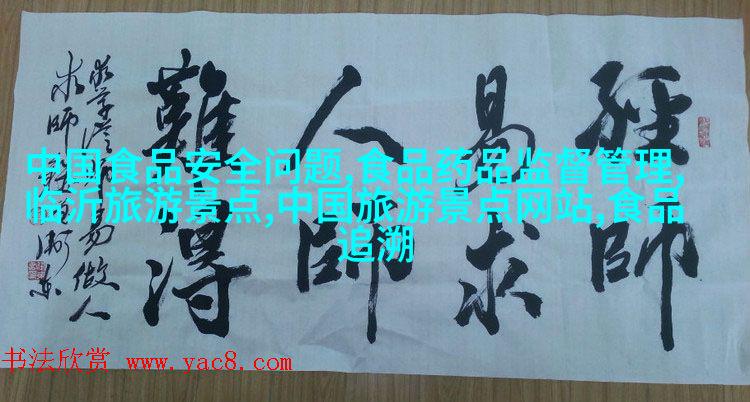 經師
易求
人師
難得
中国食品安全问题,食品药品监督管理,
临沂旅游景点,中国旅游景点网站,食品
追溯
书法欣赏 www.yac8.com